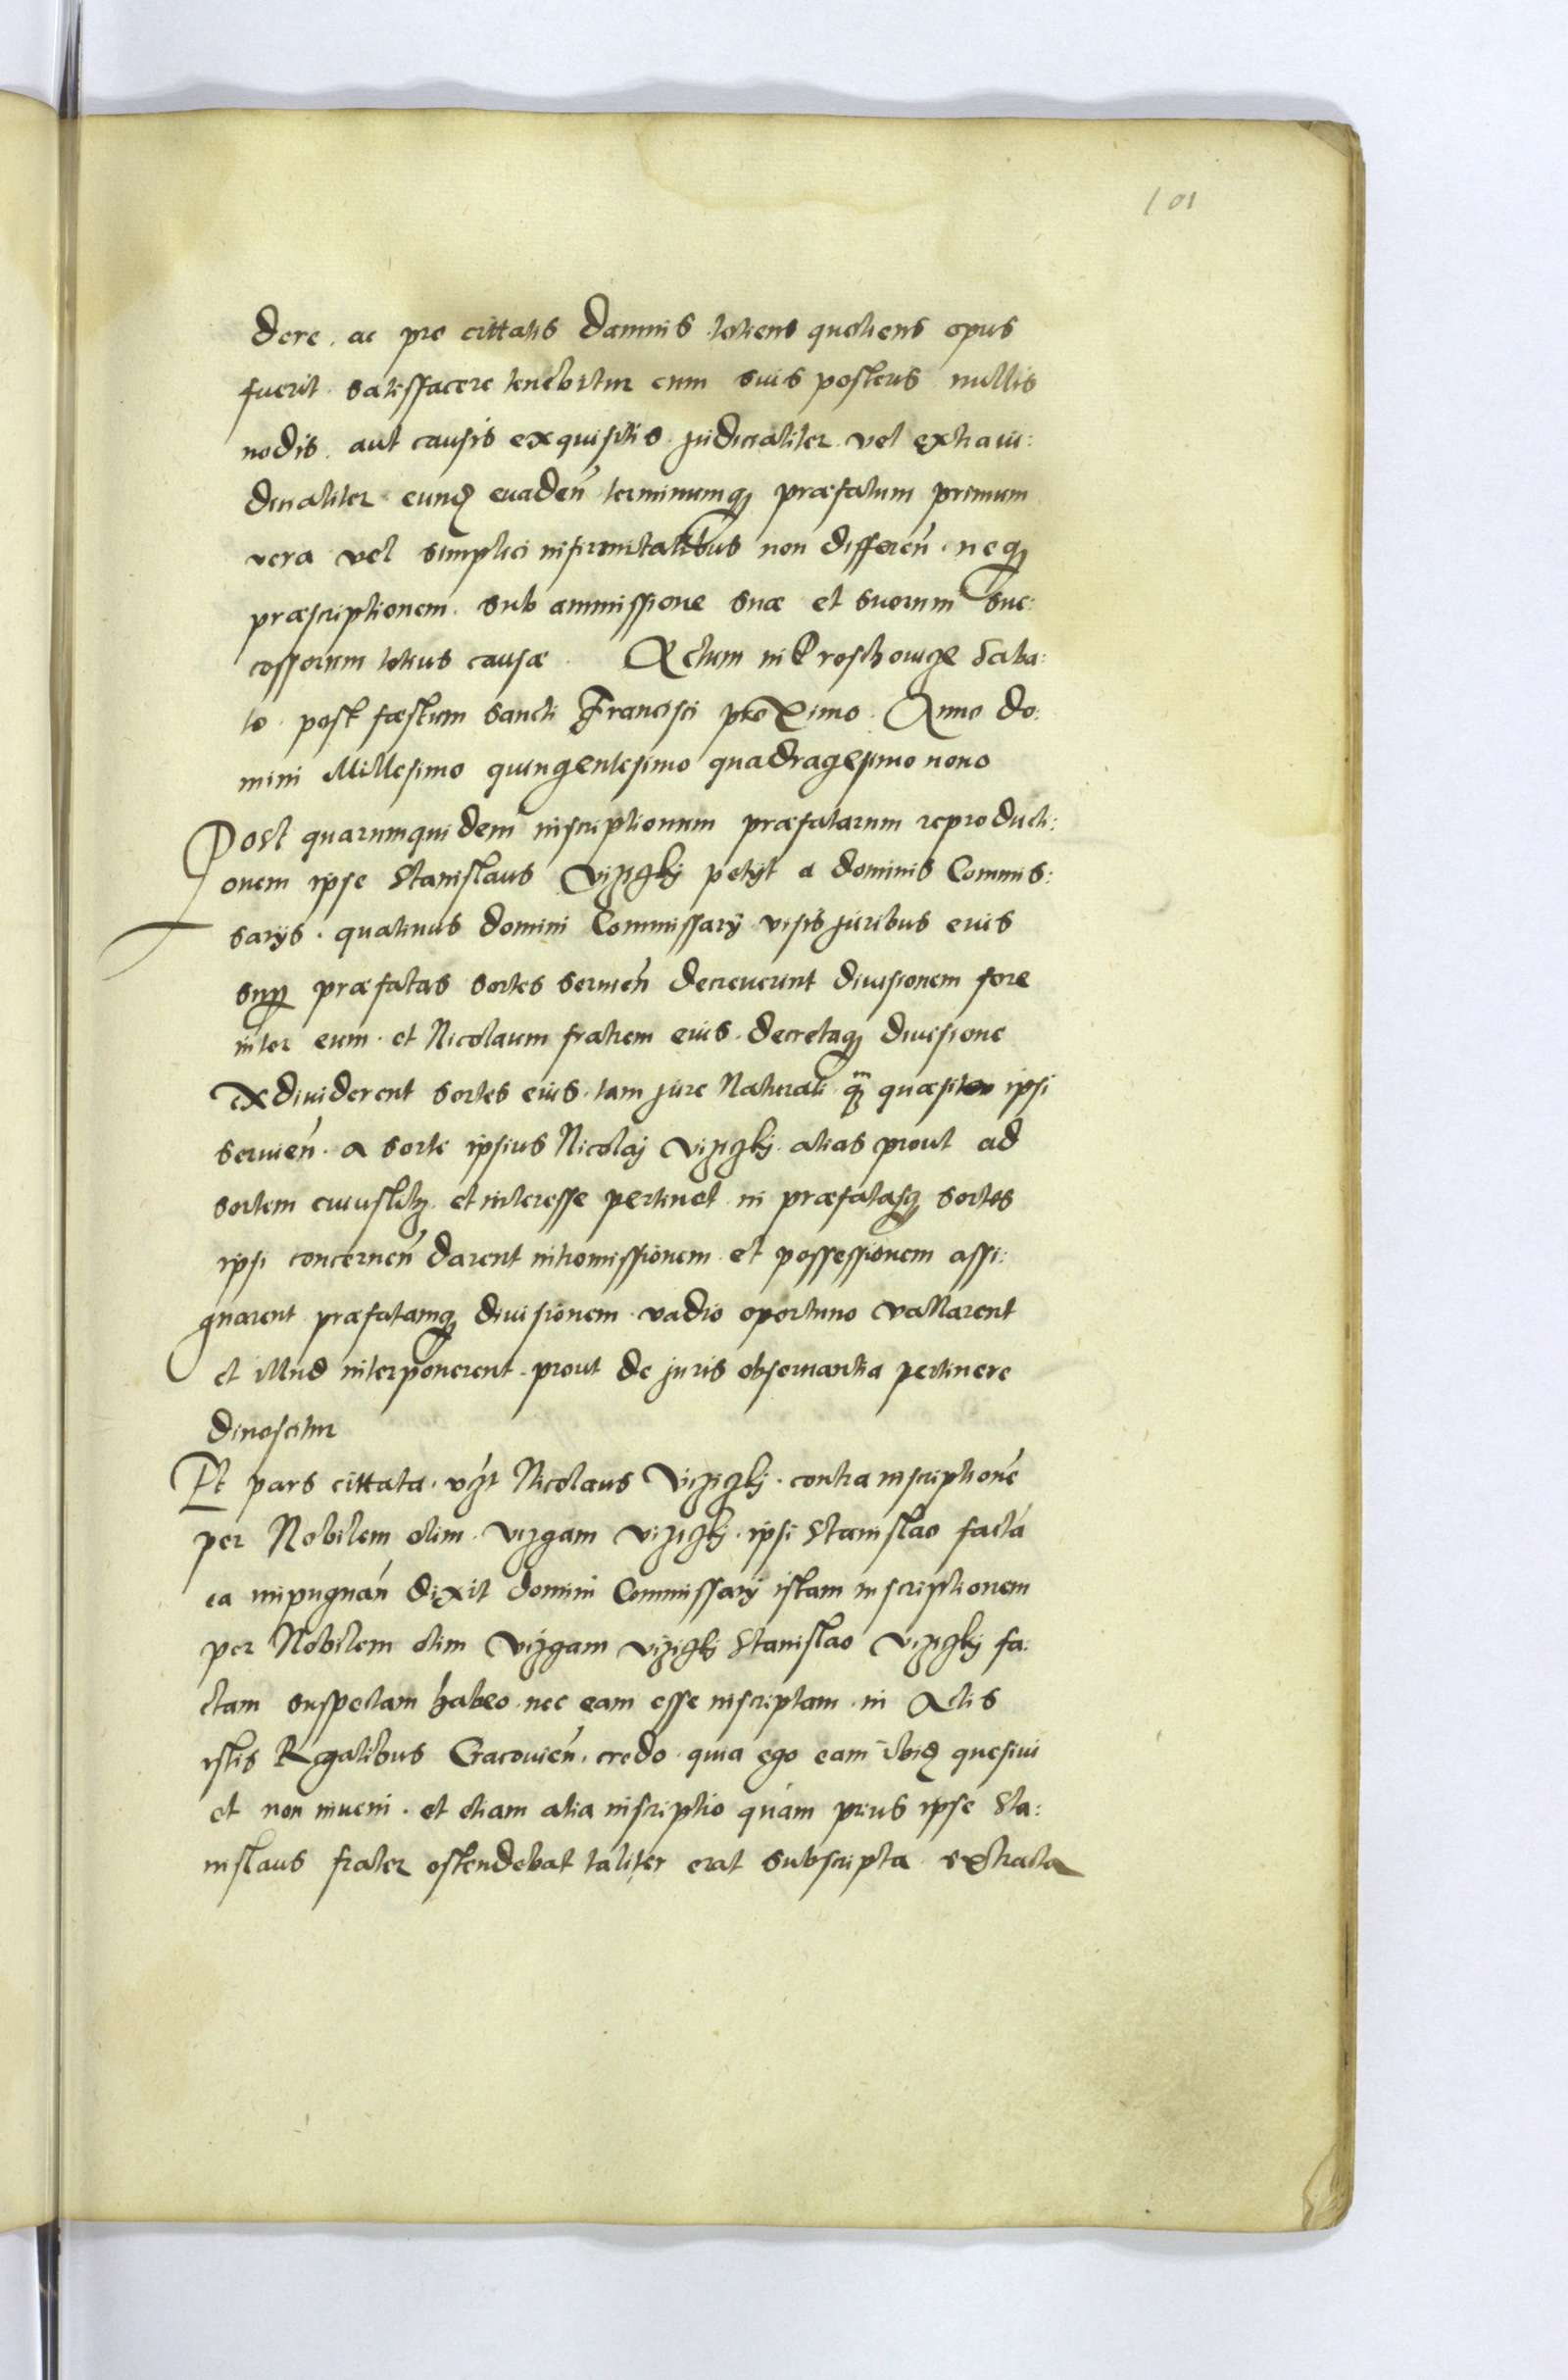 101
dere, ac pro cittatis damnis totiens quotiens opus
fuerit satisfacere tenebitur cum suis posteris nullis
modis, aut causis exquisitis judicialiter vel extraiu:
dicialiter eundem evaden̄ terminumq₃ præfatum primum
vera vel simplici infirmitatibus non differen̄. neq₃
præscriptionem. sub ammissione suæ et suorum suc:
cessorum totius causæ. Actum in Proschowicze Saba:
to post fæstum Sancti Francisci proximo. Anno do:
mini Millesimo quingentesimo quadragesimo nono
Post quarumquidem inscriptionum præfatarum reproducti:
onem ipse Stanislaus petÿt a dominis Commis:
sarÿs. quatinus domini Commissarÿ visis juribus eius
super præfatas sortes servien̄ decreverint divisionem fore
inter eum et Nicolaum fratrem eius. decretaq₃ divisione
exdividerent sortes eius. tam jure Naturali quæsito ipsi
servien̄. a sorte ipsius Nicolaj alias prout ad
sortem cuiuslibet et interesse pertinet in præfatasq₃ sortes
ipsi concernen̄ darent intromissionem et possessionem assi:
gnarent præfatamq₃ divisionem vadio oportuno vallarent
et illud interponerent. prout de juris observantia pertinere
dinoscitur
Et pars cittata. vz̄t Nicolaus contra inscriptionē
per Nobilem olim ipsi Stanislao factā
ea impugnan̄ dixit domini Commissarÿ istam inscriptionem
per Nobilem olim Stanislao fa:
ctam suspectam habeo. nec eam esse inscriptam in Actis
istis Regalibus Cracovien̄. credo quia ego eam ibidem quesivi
et non inveni. et etiam alia inscriptio quam prius ipse Sta:
nislaus frater ostendebat taliter erat subscripta extracta